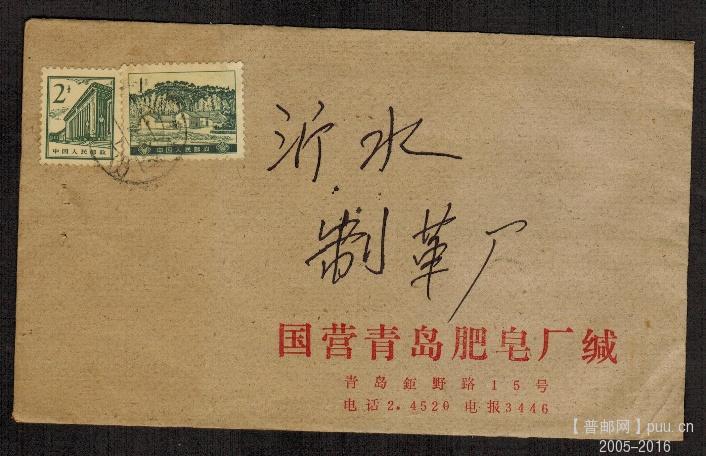 2分
中国人民邮政
1
中国人民邮政
沂水
制革厂
国营青岛肥皂厂缄
青岛鉅野路15号
电话2.4520 电报3446
【普邮网】puu.cn
2005-2016